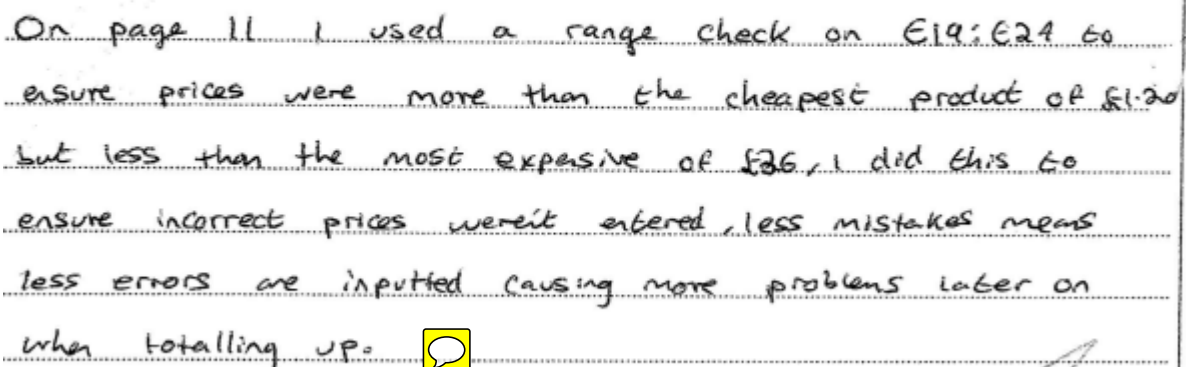 On page 11 I used a range check on E19:E24 to
ensure prices were more than the cheapest product of £1.20
but less than the most expensive of £26, I did this to
ensure incorrect prices weren't entered, less mistakes means
less errors are inputted causing more problems later on
when totalling up.